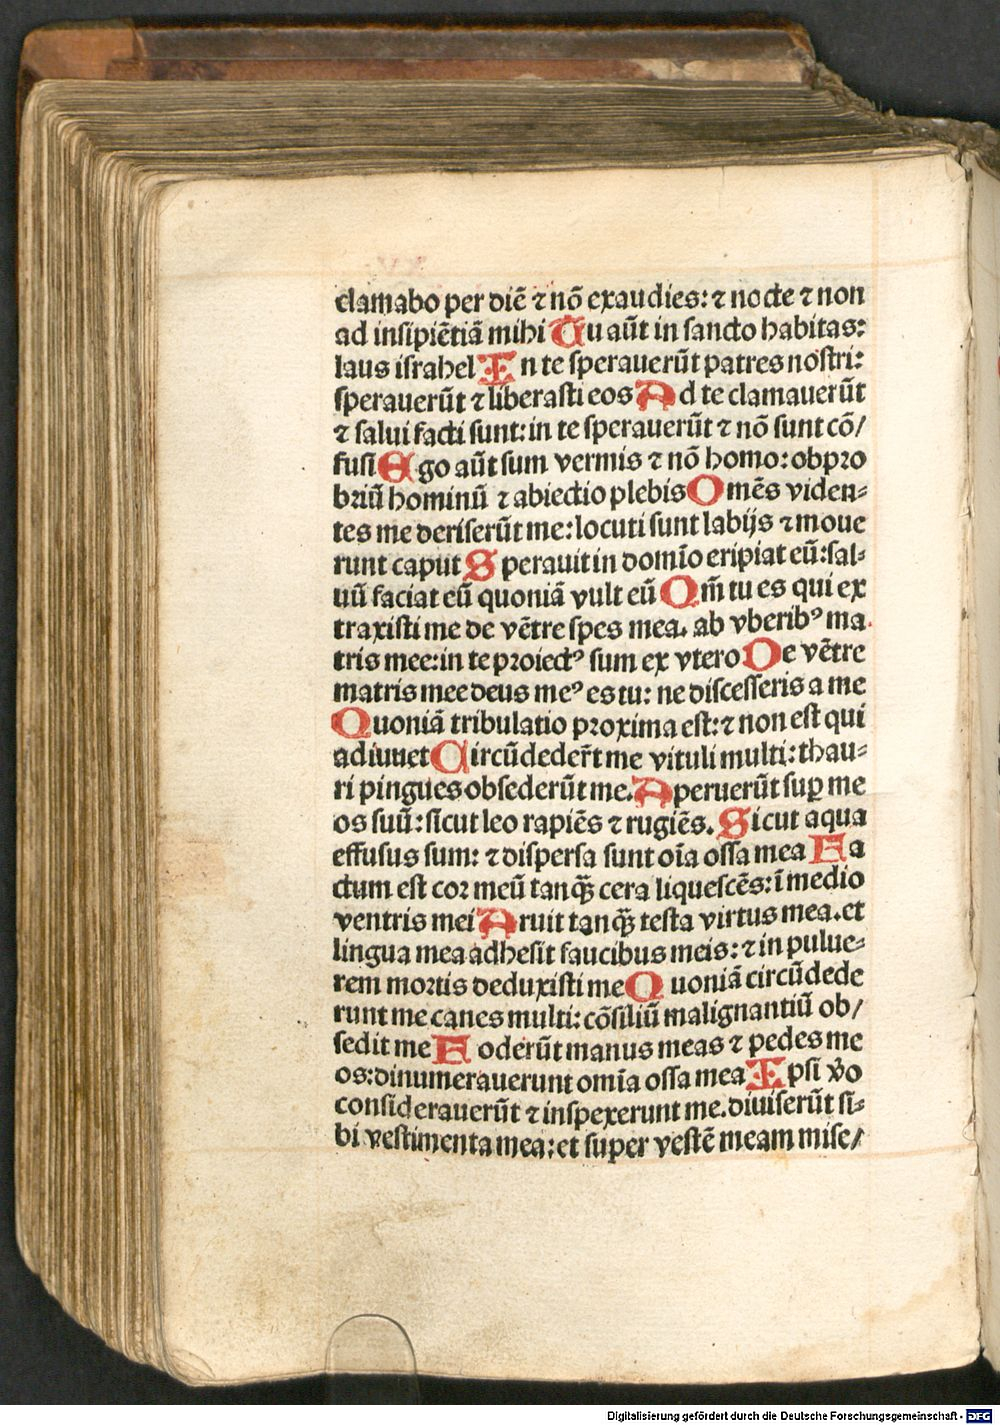 clamabo per diē ⁊ nō exaudies: ⁊ nocte ⁊ non
ad insipiētiā mihi Tu aūt in sancto habitas:
laus israhel In te sperauerūt patres nostri:
sperauerūt ⁊ liberasti eos Ad te clamauerūt
⁊ salui facti sunt: in te sperauerūt ⁊ nō sunt cō/
fusi Ego aūt sum vermis ⁊ nō homo: obpro
briū hominū ⁊ abiectio plebis Omēs viden⸗
tes me deriserūt me: locuti sunt labijs ⁊ moue
runt caput Sperauit in domīo eripiat eū: sal⸗
uū faciat eū quoniā vult eū Qm̄ tu es qui ex
traxisti me de vētre spes mea. ab vberibꝰ ma
tris mee: in te proiectꝰ sum ex vtero De vētre
matris mee deus meꝰ es tu: ne discesseris a me
Quoniā tribulatio proxima est: ⁊ non est qui
adiuuet Circūdeder̄t me vituli multi: thau⸗
ri pingues obsederūt me. Aperuerūt suꝑ me
os suū: sicut leo rapiēs ⁊ rugiēs. Sicut aqua
effusus sum: ⁊ dispersa sunt oīa ossa mea Fa
ctum est cor meū tanqȝ̄ cera liquescēs: ī medio
ventris mei Aruit tanqȝ̄ testa virtus mea. et
lingua mea adhesit faucibus meis: ⁊ in pulue⸗
rem mortis deduxisti me Quoniā circūdede
runt me canes multi: cōsiliū malignantiū ob/
sedit me Foderūt manus meas ⁊ pedes me
os: dinumerauerunt omīa ossa mea Ipsi v̄o
considerauerūt ⁊ inspexerunt me. diuiserūt si⸗
bi vestimenta mea: et super vestē meam mise/
Digitalisierung gefördert durch die Deutsche Forschungsgemeinschaft - DFG